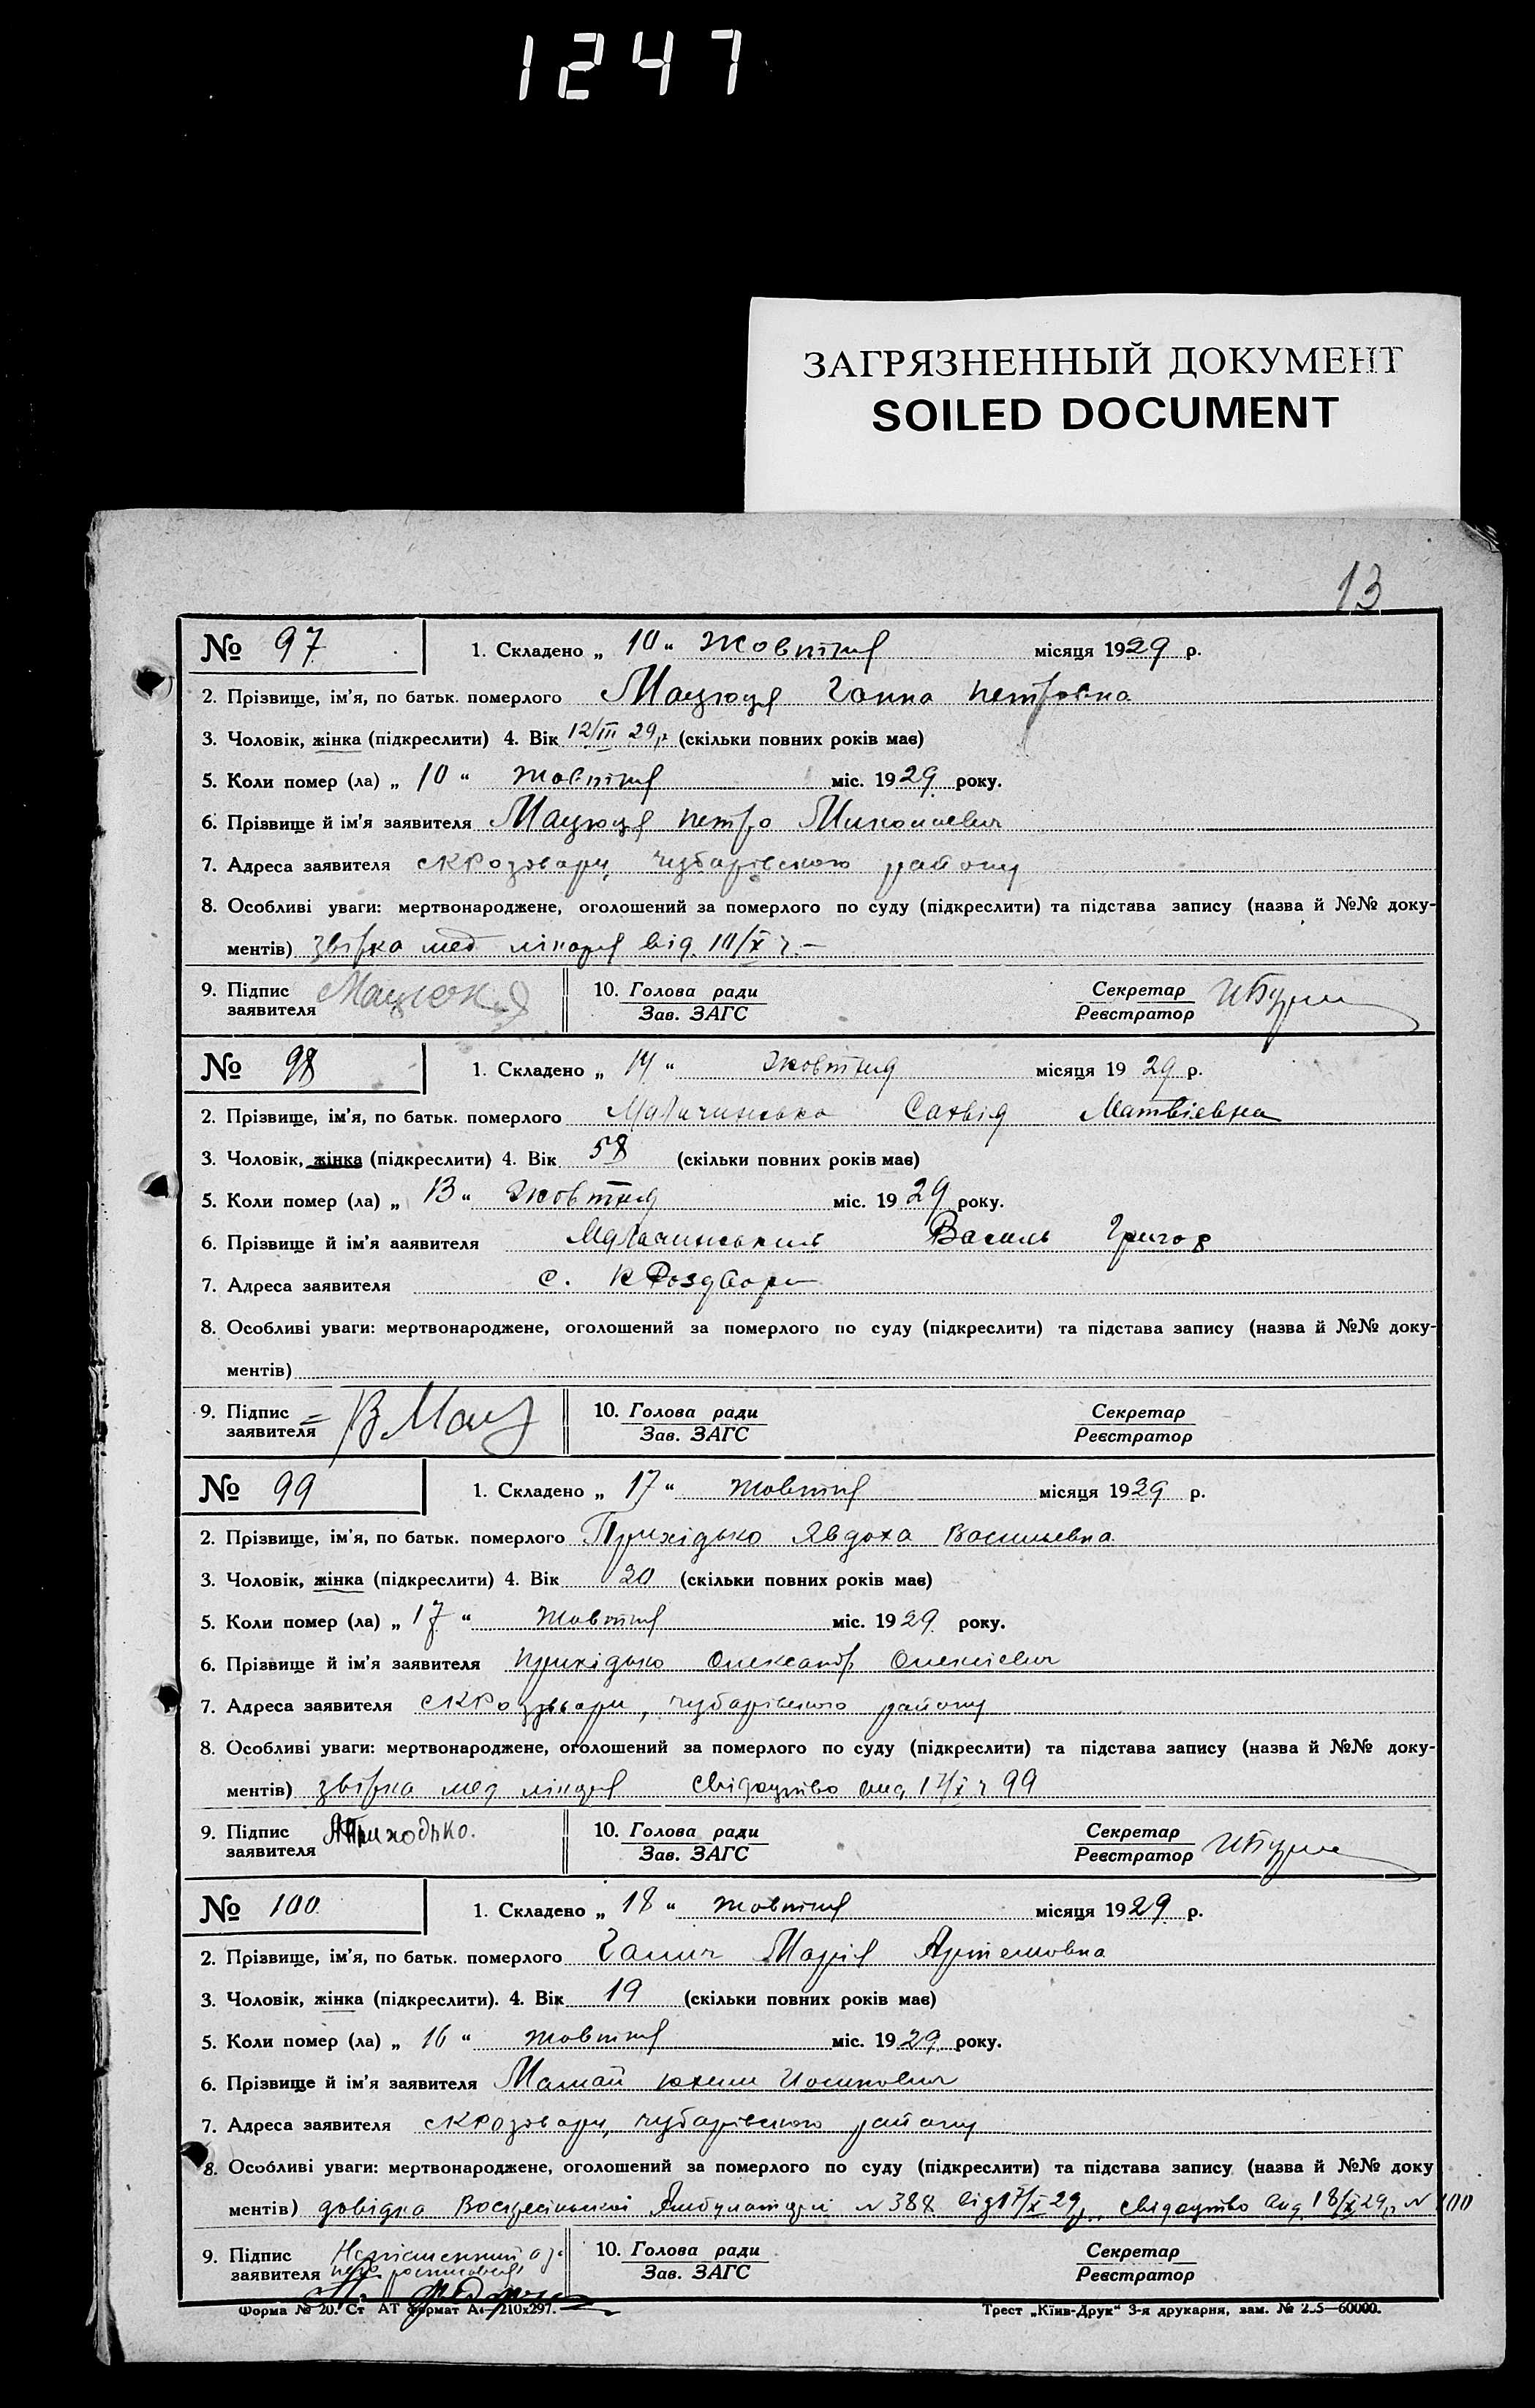 1247
ЗАГРЯЗНЕННЫЙ ДОКУМЕНТ
SOILED DOCUMENT
13
№ 97 1. Складено „ 10 “ жовтня місяця 1929 р.
2. Прізвище, ім'я, по батьк. померлого Мацюця Ганна Петровна
3. Чоловік, жінка (підкреслити) 4. Вік 12/III 29 р. (скільки повних років має)
5. Коли помер (ла) „ 10 “ жовтня міс. 1929 року.
6. Прізвище й ім'я заявителя Мацюця Петро Миколаєвич
7. Адреса заявителя с К Роздори, Чубарівського району
8. Особливі уваги: мертвонароджене, оголошений за померлого по суду (підкреслити) та підстава запису (назва й №№ доку-
ментів) мед лікаря від 10/X
9. Підпис 10. Голова ради Секретар
заявителя Зав. ЗАГС Реєстратор
№ 98 1. Складено „ 14 “ Жовтня місяця 1929 р.
2. Прізвище, ім'я, по батьк. померлого Матвієвна
3. Чоловік, жінка (підкреслити) 4. Вік 58 (скільки повних років має)
5. Коли помер (ла) „ 13 “ Жовтня міс. 1929 року.
6. Прізвище й ім'я аявителя Василь Григор
7. Адреса заявителя с. К Роздори
8. Особливі уваги: мертвонароджене, оголошений за померлого по суду (підкреслити) та підстава запису (назва й №№ доку-
ментів)
9. Підпис 10. Голова ради Секретар
заявителя Зав. ЗАГС Реєстратор
№ 99 1. Складено „ 17 “ жовтня місяця 1929 р.
2. Прізвище, ім'я, по батьк. померлого Прихідько Явдоха Васильевна
3. Чоловік, жінка (підкреслити) 4. Вік 20 (скільки повних років має)
5. Коли помер (ла) „ 17 “ жовтня міс. 1929 року.
6. Прізвище й ім'я заявителя Прихідько Олександр Олексієвич
7. Адреса заявителя с К Роздори, Чубарівського району
8. Особливі уваги: мертвонароджене, оголошений за померлого по суду (підкреслити) та підстава запису (назва й №№ доку-
ментів) мед лікаря свідоцтво 17/X 99
9. Підпис Приходько. 10. Голова ради Секретар
заявителя Зав. ЗАГС Реєстратор
№ 100 1. Складено „ 18 “ жовтня місяця 1929 р.
2. Прізвище, ім'я, по батьк. померлого Галич Марія Артемовна
3. Чоловік, жінка (підкреслити). 4. Вік 19 (скільки повних років має)
5. Коли помер (ла) „ 16 “ жовтня міс. 1929 року.
6. Прізвище й ім'я заявителя Мамай Юхим Йосипович
7. Адреса заявителя с К Роздори, Чубарівського району
8. Особливі уваги: мертвонароджене, оголошений за померлого по суду (підкреслити) та підстава запису (назва й №№ доку
ментів) довідка Воскресінської Амбулаторії № 388 від 17/X 29 р., свідоцтво вид 18/X 29 р. № 100
9. Підпис 10. Голова ради Секретар
заявителя Зав. ЗАГС Реєстратор
Форма № 20. Ст АТ формат А4—210х297. Трест „Київ-Друк“ 3-я друкарня, зам. № 225—60000.